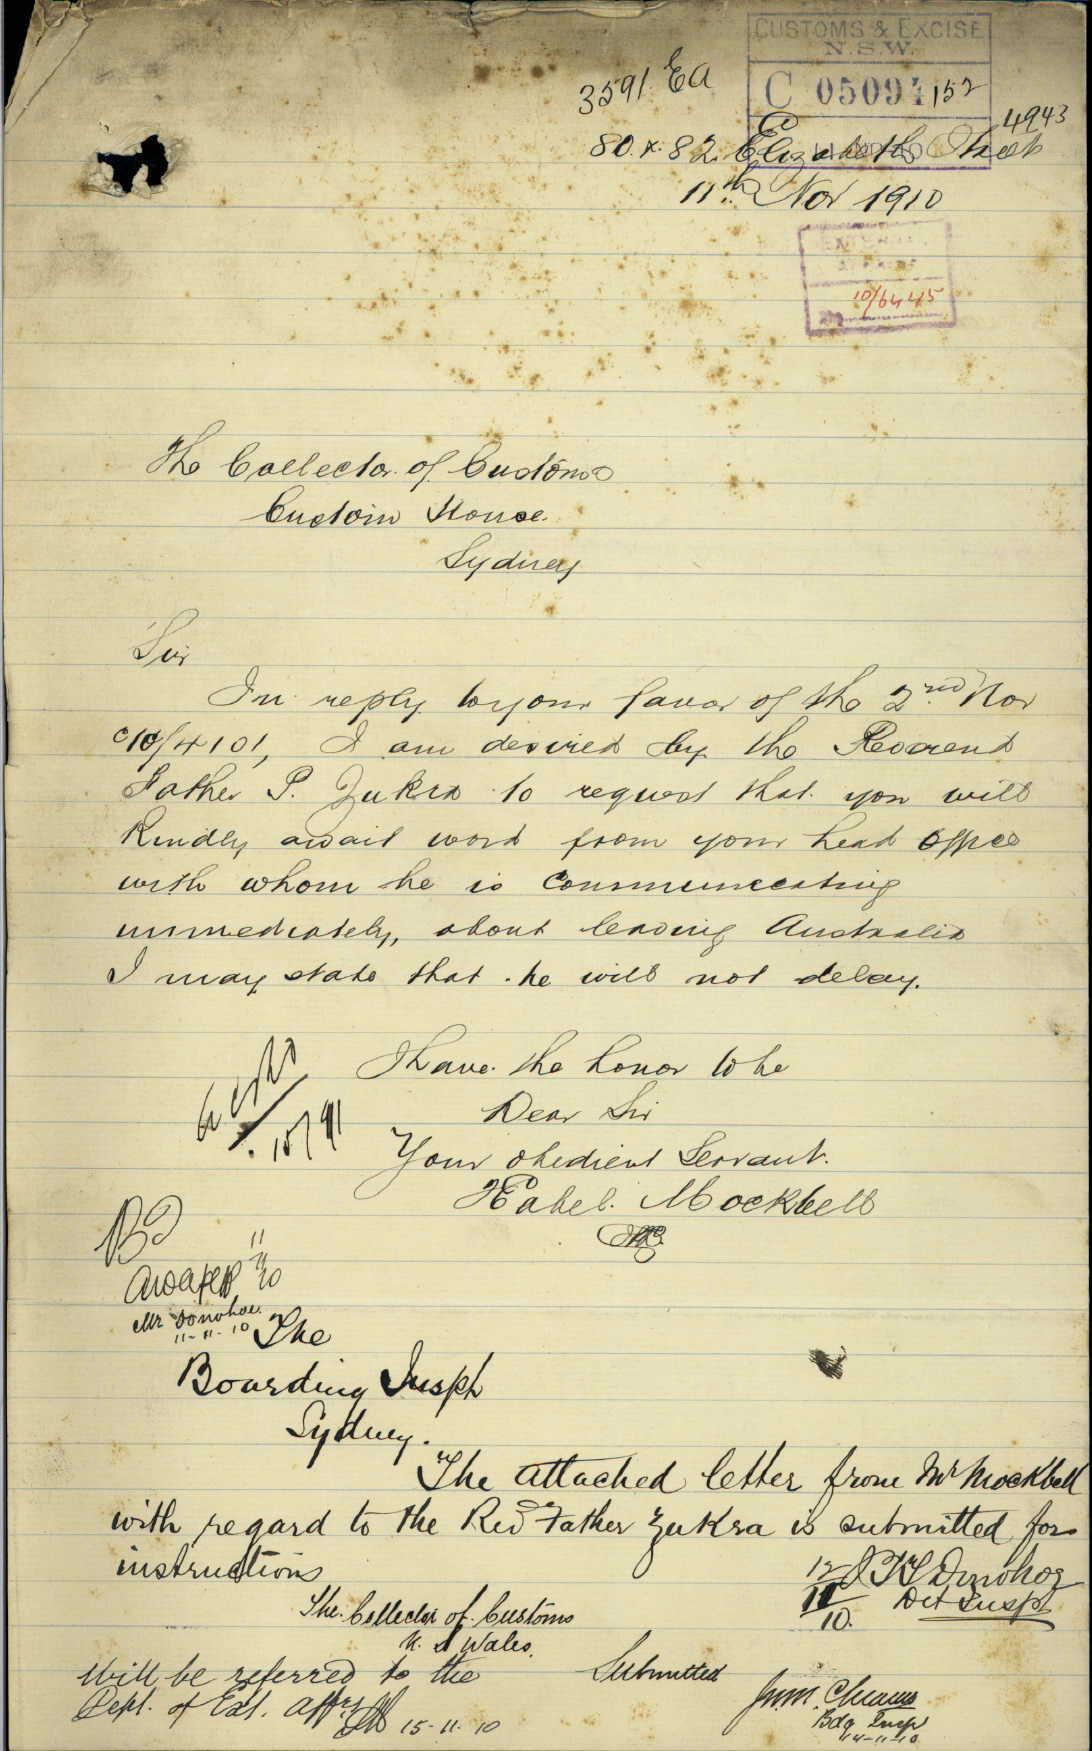 CUSTOMS & EXCISE
N.S.W.
3591 EA
C 05094 152
4943
80 & 82 Elizabeth Street
11th Nov 1910
EXTERNAL
AFFAIRS
10/6445
The Collector of Customs
Custom House.
Sydney
Sir
In reply to your favor of the 2nd Nov
C10/4101, I am desired by the Reverend
Father P. Zukra to request that you will
Kindly await word from your head Office
with whom he is Communicating
immediately, about leaving Australia
I may state that he will not delay.
I have the honor to be
Dear Sir
Your obedient Servant.
Habel. Mockbell
BI
11/11/10
Mr Donohoe.
11-11-10
The
Boarding Inspr
Sydney.
The attached letter from Mr Mockbell
with regard to the Revd Father Zukra is submitted for
instructions
12/11/10. Donohoe
Det Inspr
The Collector of Customs
N. S Wales.
Submitted
Will be referred to the
Dept. of Ext. Affrs
15-11-10
Bdg Insp
14-11-10